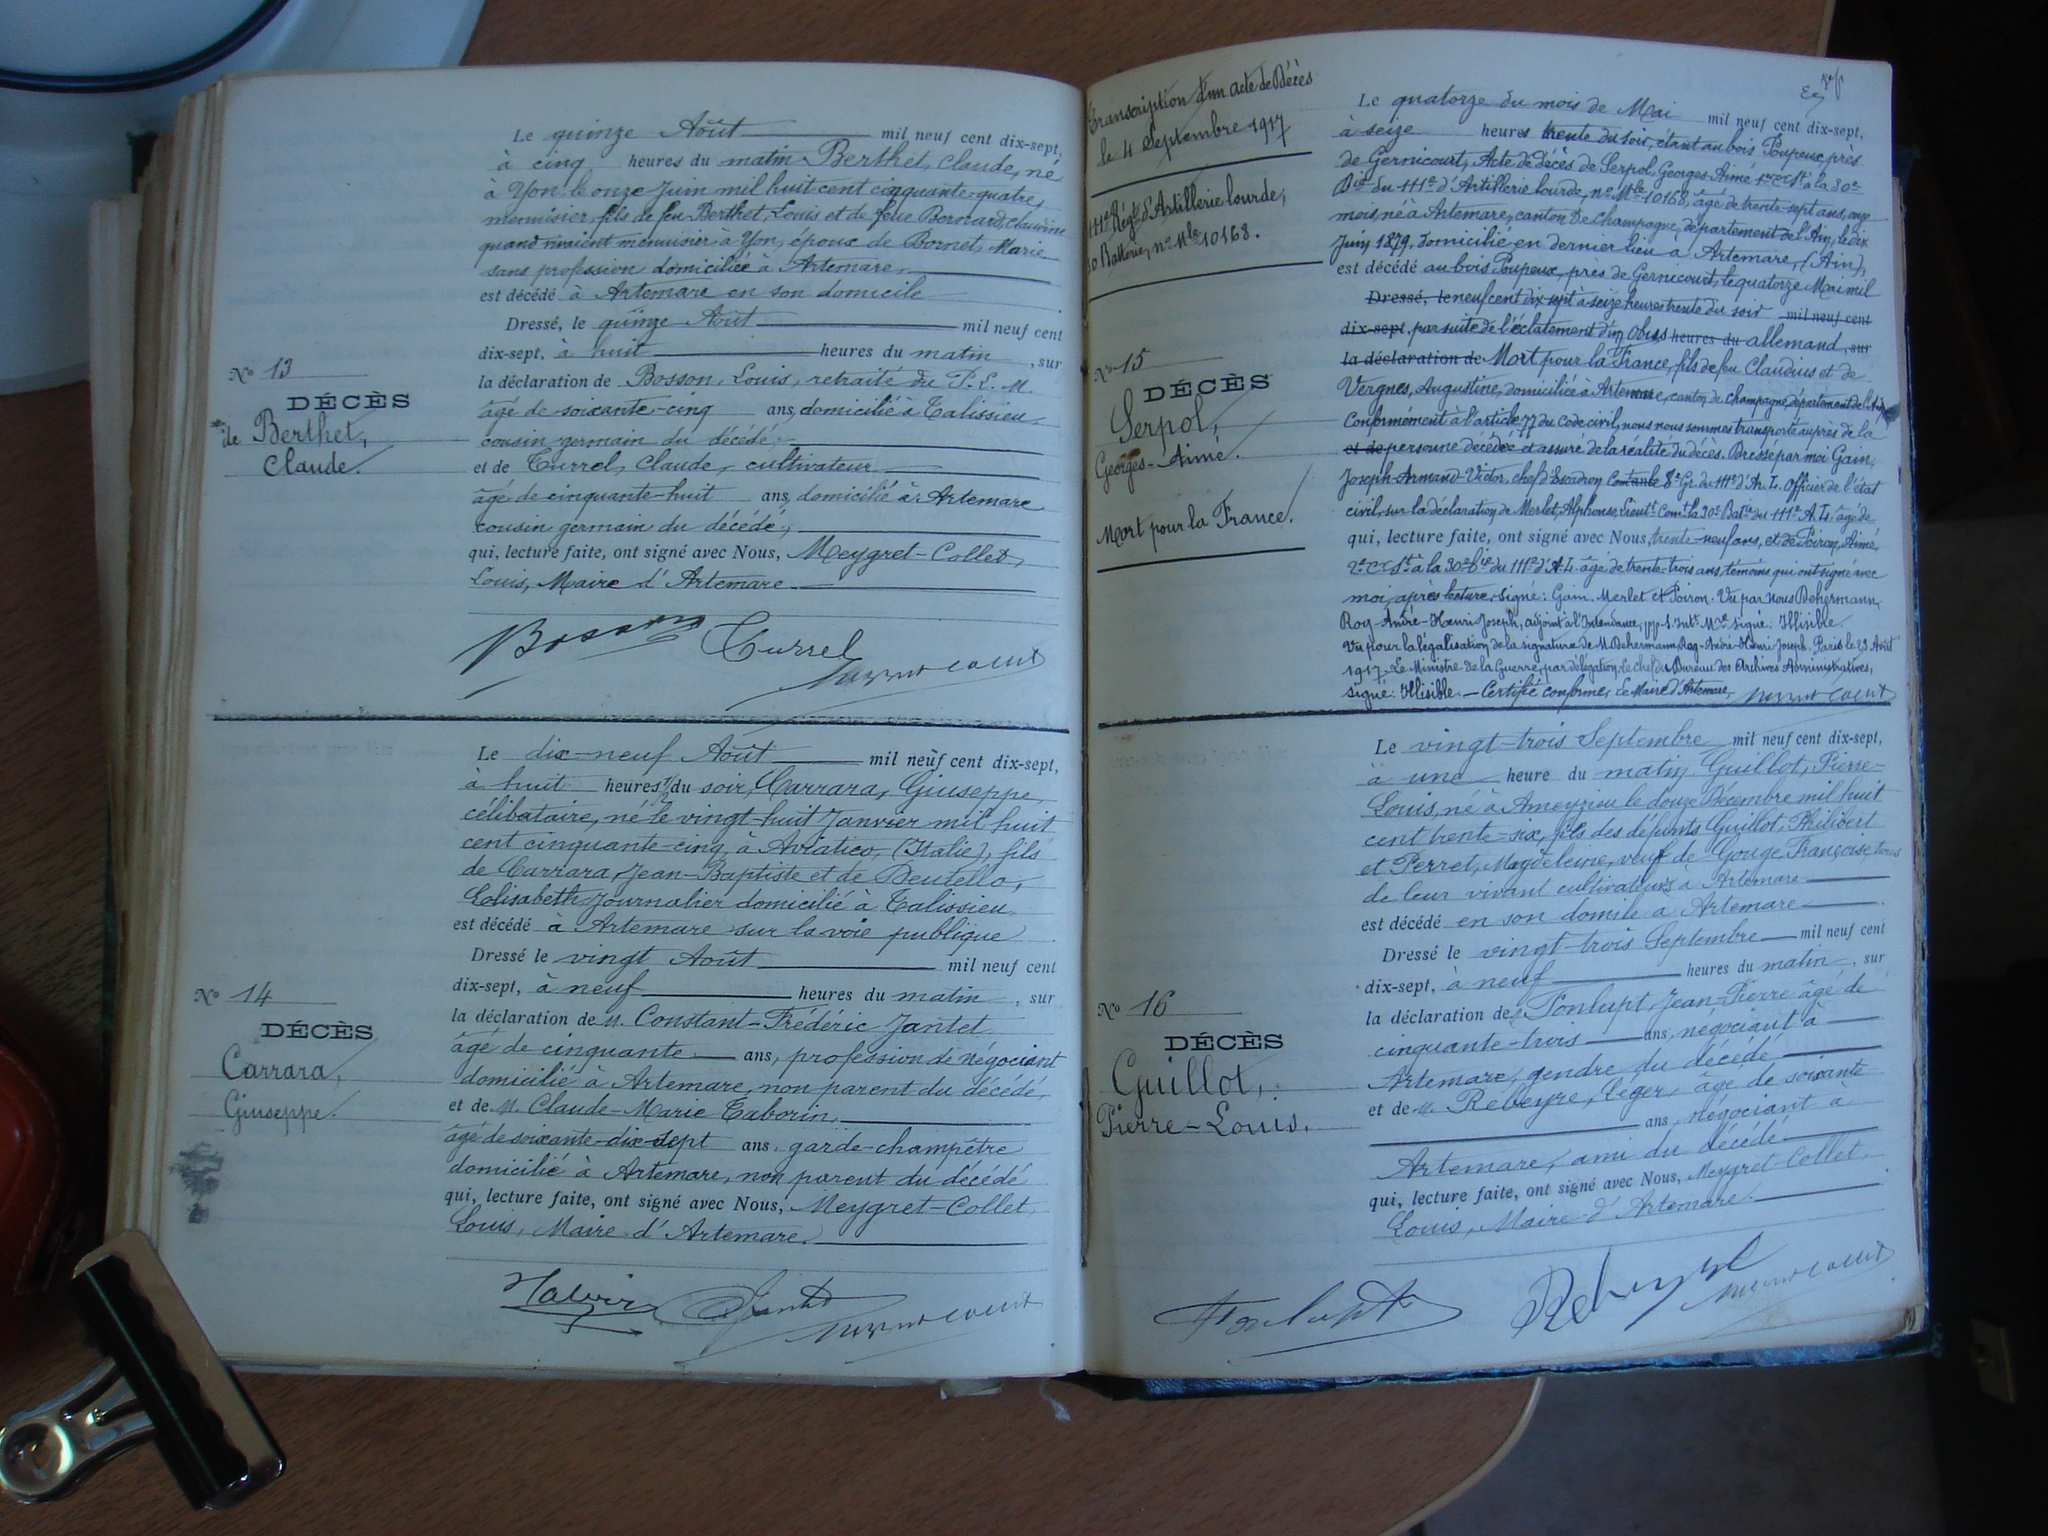 Le quinze Août mil neuf cent dix-sept,
à cinq heures du matin Berthet, Claude, né
à Yon le onze Juin mil huit cent cinquante-quatre,
menuisier, fils de feu Berthet, Louis et de feue Claudine
quand vivaient menuisier à Yon, époux de Bornet, Marie
sans profession domiciliée à Artemare,
est décédé à Artemare en son domicile
Dressé, le quinze Août mil neuf cent
dix-sept, à huit heures du matin, sur
la déclaration de Bosson, Louis, retraité du P.L.M.
âgé de soixante-cinq ans, domicilié à Talissieu,
cousin germain du décédé,
et de Turrel, Claude, cultivateur
âgé de cinquante-huit ans, domicilié à Artemare
cousin germain du décédé,
qui, lecture faite, ont signé avec Nous, Meygret-Collet,
Louis, Maire d'Artemare.
No 13
DÉCÈS
de Berthet,
Claude.
Bosson Turrel
Le dix-neuf Août mil neuf cent dix-sept,
à huit heures du soir, Carrara, Giuseppe,
célibataire, né le vingt-huit Janvier mil huit
cent cinquante-cinq, à Aviatico, (Italie), fils
de Carrara, Jean-Baptiste et de Dentello,
Elisabeth Journalier domicilié à Talissieu.
est décédé à Artemare sur la voie publique
Dressé le vingt Août mil neuf cent
dix-sept, à neuf heures du matin, sur
la déclaration de M. Constant-Frédéric Jantet
âgé de cinquante ans, profession de négociant
domicilié à Artemare, non parent du décédé,
et de M. Claude-Marie Taborin,
âgé de soixante-dix-sept ans, garde-champêtre
domicilié à Artemare, non parent du décédé
qui, lecture faite, ont signé avec Nous, Meygret-Collet,
Louis, Maire d'Artemare.
No 14
DÉCÈS
Carrara,
Giuseppe.
Transcription d'un acte de Décès
le 4 Septembre 1917
111e Régt d'Artillerie lourde,
30 Batterie, no Mle 10168.
No 15
DÉCÈS
Serpol,
Georges-Aimé.
Mort pour la France.
Le quatorze du mois de Mai mil neuf cent dix-sept,
à seize heures trente du soir, étant au bois Poupeux, près
de Gernicourt, Acte de décès de Serpol, Georges-Aimé, à la 30e
Bie du 111e d'Artillerie lourde, no Mle 10168, âgé de trente-sept ans, onze
mois, né à Artemare, canton de Champagne, département de l'Ain, le dix
Juin 1879, domicilié en dernier lieu à Artemare, (Ain),
est décédé au bois Poupeux, près de Gernicourt, le quatorze Mai mil
Dressé, le neuf cent dix sept à seize heures trente du soir mil neuf cent
dix-sept, par suite de l'éclatement d'un obus heures du allemand, sur
la déclaration de Mort pour la France, fils de feu Claudius et de
Vergnes, Augustine, domiciliée à Artemare, canton de Champagne, département de l'Ain
Conformément à l'article 77 du Code civil, nous nous sommes transporté auprès de la
et de personne décédée et assuré de la réalité du décès. Dressé par moi Gain,
Joseph-Armand-Victor, chef d'Escadron 8e Gr. du 111e d'A. L. Officier de l'état
civil, sur la déclaration de Merlet, Alphonse, Lieutt Comt la 30e Batie du 111e A.L. âgé de
qui, lecture faite, ont signé avec Nous, trente-neuf ans, et de Poiron, Aimé,
à la 30e bie du 111e d'A.L. âgé de trente-trois ans, témoins qui ont signé avec
moi, après lecture. Signé: Gain. Merlet et Poiron. Vu par nous Dehermann,
Roq-André-Henri-Joseph, adjoint à l'Intendance, signé: Illisible.
Vu pour la légalisation de la signature de M. Dehermann, Roq-André-Henri-Joseph. Paris le 23 Août
1917. Le Ministre de la Guerre, par délégation, le chef du Bureau des Archives Administratives,
signé: Illisible. — Certifié conforme, Le Maire d'Artemare,
Le vingt-trois Septembre mil neuf cent dix-sept,
à une heure du matin Guillot, Pierre-
Louis, né à Ameyzieu le douze Décembre mil huit
cent trente-six, fils des défunts Guillot, Philibert
et Perret, Magdeleine, veuf de Gouge, Françoise, tous
de leur vivant cultivateurs à Artemare
est décédé en son domile à Artemare
Dressé le vingt-trois Septembre mil neuf cent
dix-sept, à neuf heures du matin, sur
la déclaration de Fonlupt, Jean-Pierre âgé de
cinquante-trois ans, négociant à
Artemare, gendre du décédé
et de M. Rebeyre, Léger, âgé de soixante
ans, négociant à
Artemare, ami du décédé
qui, lecture faite, ont signé avec Nous, Meygret-Collet,
Louis, Maire d'Artemare.
No 16
DÉCÈS
Guillot,
Pierre-Louis.
Fonlupt Rebeyre